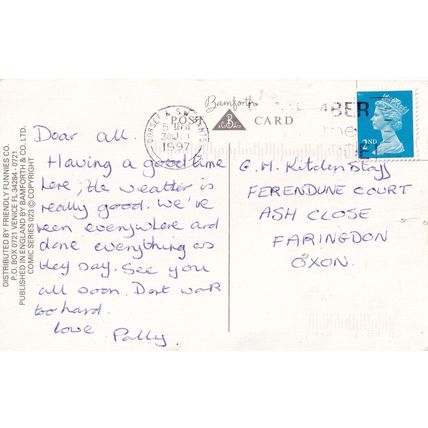 Bamforth
POST CARD
B
DORSET & S.W. HANTS
1997
2ND
Dear all.
Having a good time
here, the weather is
really good. We've
been everywhere and
done everything as
they say. See you
all soon. Dont work
too hard.
Love
Polly.
G.M. Kitchen Staff
FERENDUNE COURT
ASH CLOSE
FARINGDON
OXON.
DISTRIBUTED BY FRIENDLY FUNNIES CO.
P.O. BOX 0721 VENICE FL 34284-0721
PUBLISHED IN ENGLAND BY BAMFORTH & CO. LTD.
COMIC SERIES 023 © COPYRIGHT